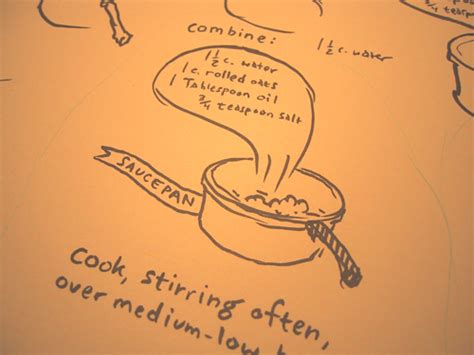 3/4 teaspoon
combine:
1 1/2 c. water
1 1/2 c. water
1 c. rolled oats
1 Tablespoon oil
3/4 teaspoon salt
SAUCEPAN
Cook, stirring often,
over medium-low